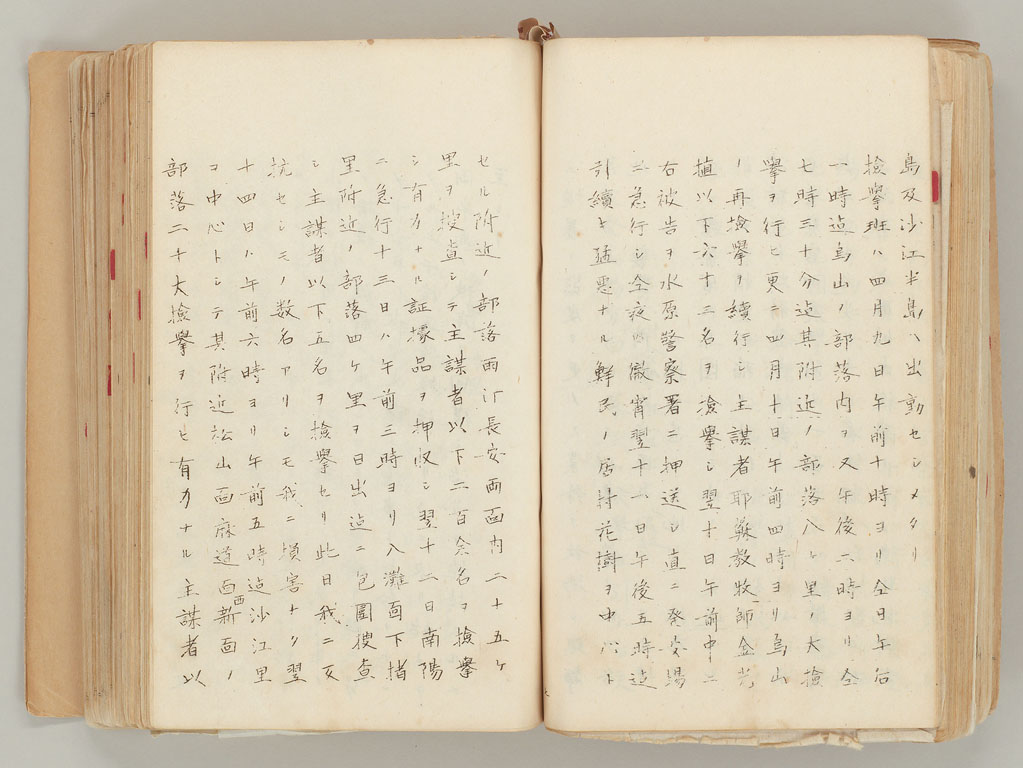 島及沙江半島ヘ出動セシメタリ
檢擧班ハ四月九日午前十時ヨリ仝日午后
一時迠烏山ノ部落内ヲ又午後六時ヨリ仝
七時三十分迠其附近ノ部落八ヶ里ノ大檢
擧ヲ行ヒ更ニ四月十日午前四時ヨリ烏山
ノ再檢擧ヲ續行シ主謀者耶蘇敎牧師金光
植以下六十二名ヲ檢擧シ翌十日午前中ニ
右被告ヲ水原警察署ニ押送シ直ニ発安場
ニ急行シ仝夜ハ徹宵翌十一日午後五時迠
引續キ獰悪ナル鮮民ノ居村花樹ヲ中心ト
セル附近ノ部落雨汀長安両面内二十五ヶ
里ヲ捜査シテ主謀者以下二百余名ヲ檢擧
シ有力ナル証據品ヲ押収シ翌十二日南陽
ニ急行十三日ハ午前三時ヨリ八灘面下楮
里附近ノ部落四ヶ里ヲ日出迠ニ包圍捜査
シ主謀者以下五名ヲ檢擧セリ此日我ニ反
抗セシモノ数名アリシモ我ニ損害ナク翌
十四日ハ午前六時ヨリ午前五時迠沙江里
ヲ中心トシテ其附近松山面麻道面西新面ノ
部落二十大檢擧ヲ行ヒ有力ナル主謀者以